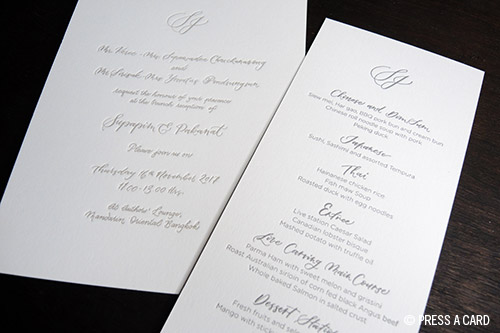 and
request the honour of your presence
at the lunch reception of
Sopapun & Pakanat
Please join us on
Thursday 16th November 2017
11:00-13:00 am
at Authors' Lounge,
Mandarin Oriental Bangkok
Chinese and Dim Sum
Siew mei, Har gao, BBQ pork bun and cream bun
Chinese roll noodle soup with pork
Peking duck
Japanese
Sushi, Sashimi and assorted Tempura
Thai
Hainanese chicken rice
Fish maw Soup
Roasted duck with egg noodles
Entree
Live station Caesar Salad
Canadian lobster bisque
Mashed potato with truffle oil
Live Carving Main Course
Parma Ham with sweet melon and grissini
Roast Australian sirloin of corn fed black Angus beef
Whole baked Salmon in salted crust
Dessert Station
Fresh fruits and
Mango with
© PRESS A CARD